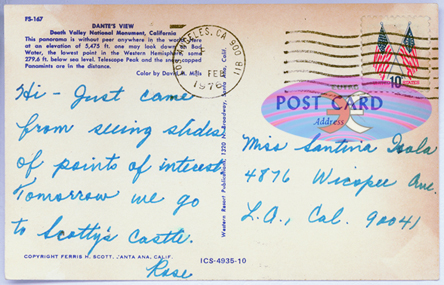 FS-167
DANTE'S VIEW
Death Valley National Monument, California
This panorama is without peer anywhere in the world. Here
at an elevation of 5,475 ft. one may look down to Bad
Water, the lowest point in the Western Hemisphere, some
279.6 ft. below sea level. Telescope Peak and the snow-capped
Panamints are in the distance.
Color by David Mills
LOS ANGELES, CA 900
FEB
1976
10¢
POST CARD
Address
Hi - Just came
from seeing slides
of points of interest.
Tomorrow we go
to Scotty's Castle.
Rose
Miss Santina Isola
4876 Wicopee Ave.
L.A., Cal. 90041
Western Resort Publications, 1220 Broadway, Santa Ana, Calif.
COPYRIGHT FERRIS H. SCOTT, SANTA ANA, CALIF.
ICS-4935-10